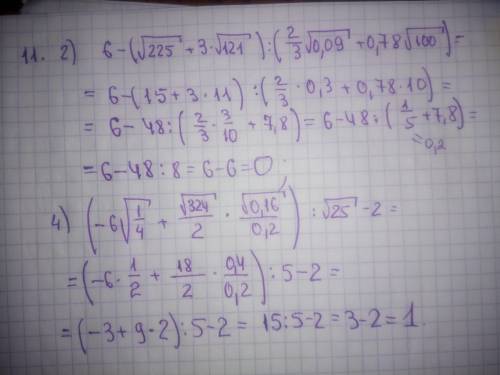 11. 2) 6-(√225 + 3·√121):(2/3√0,09 + 0,78√100)=
= 6-(15+3·11):(2/3·0,3+0,78·10)=
= 6-48:(2/3·3/10+7,8)=6-48:(1/5+7,8)=
=0,2
=6-48:8=6-6=0;
4) (-6√1/4 + √324/2 · √0,16/0,2):√25-2=
=(-6·1/2 + 18/2 · 0,4/0,2):5-2=
=(-3+9·2):5-2= 15:5-2=3-2=1.